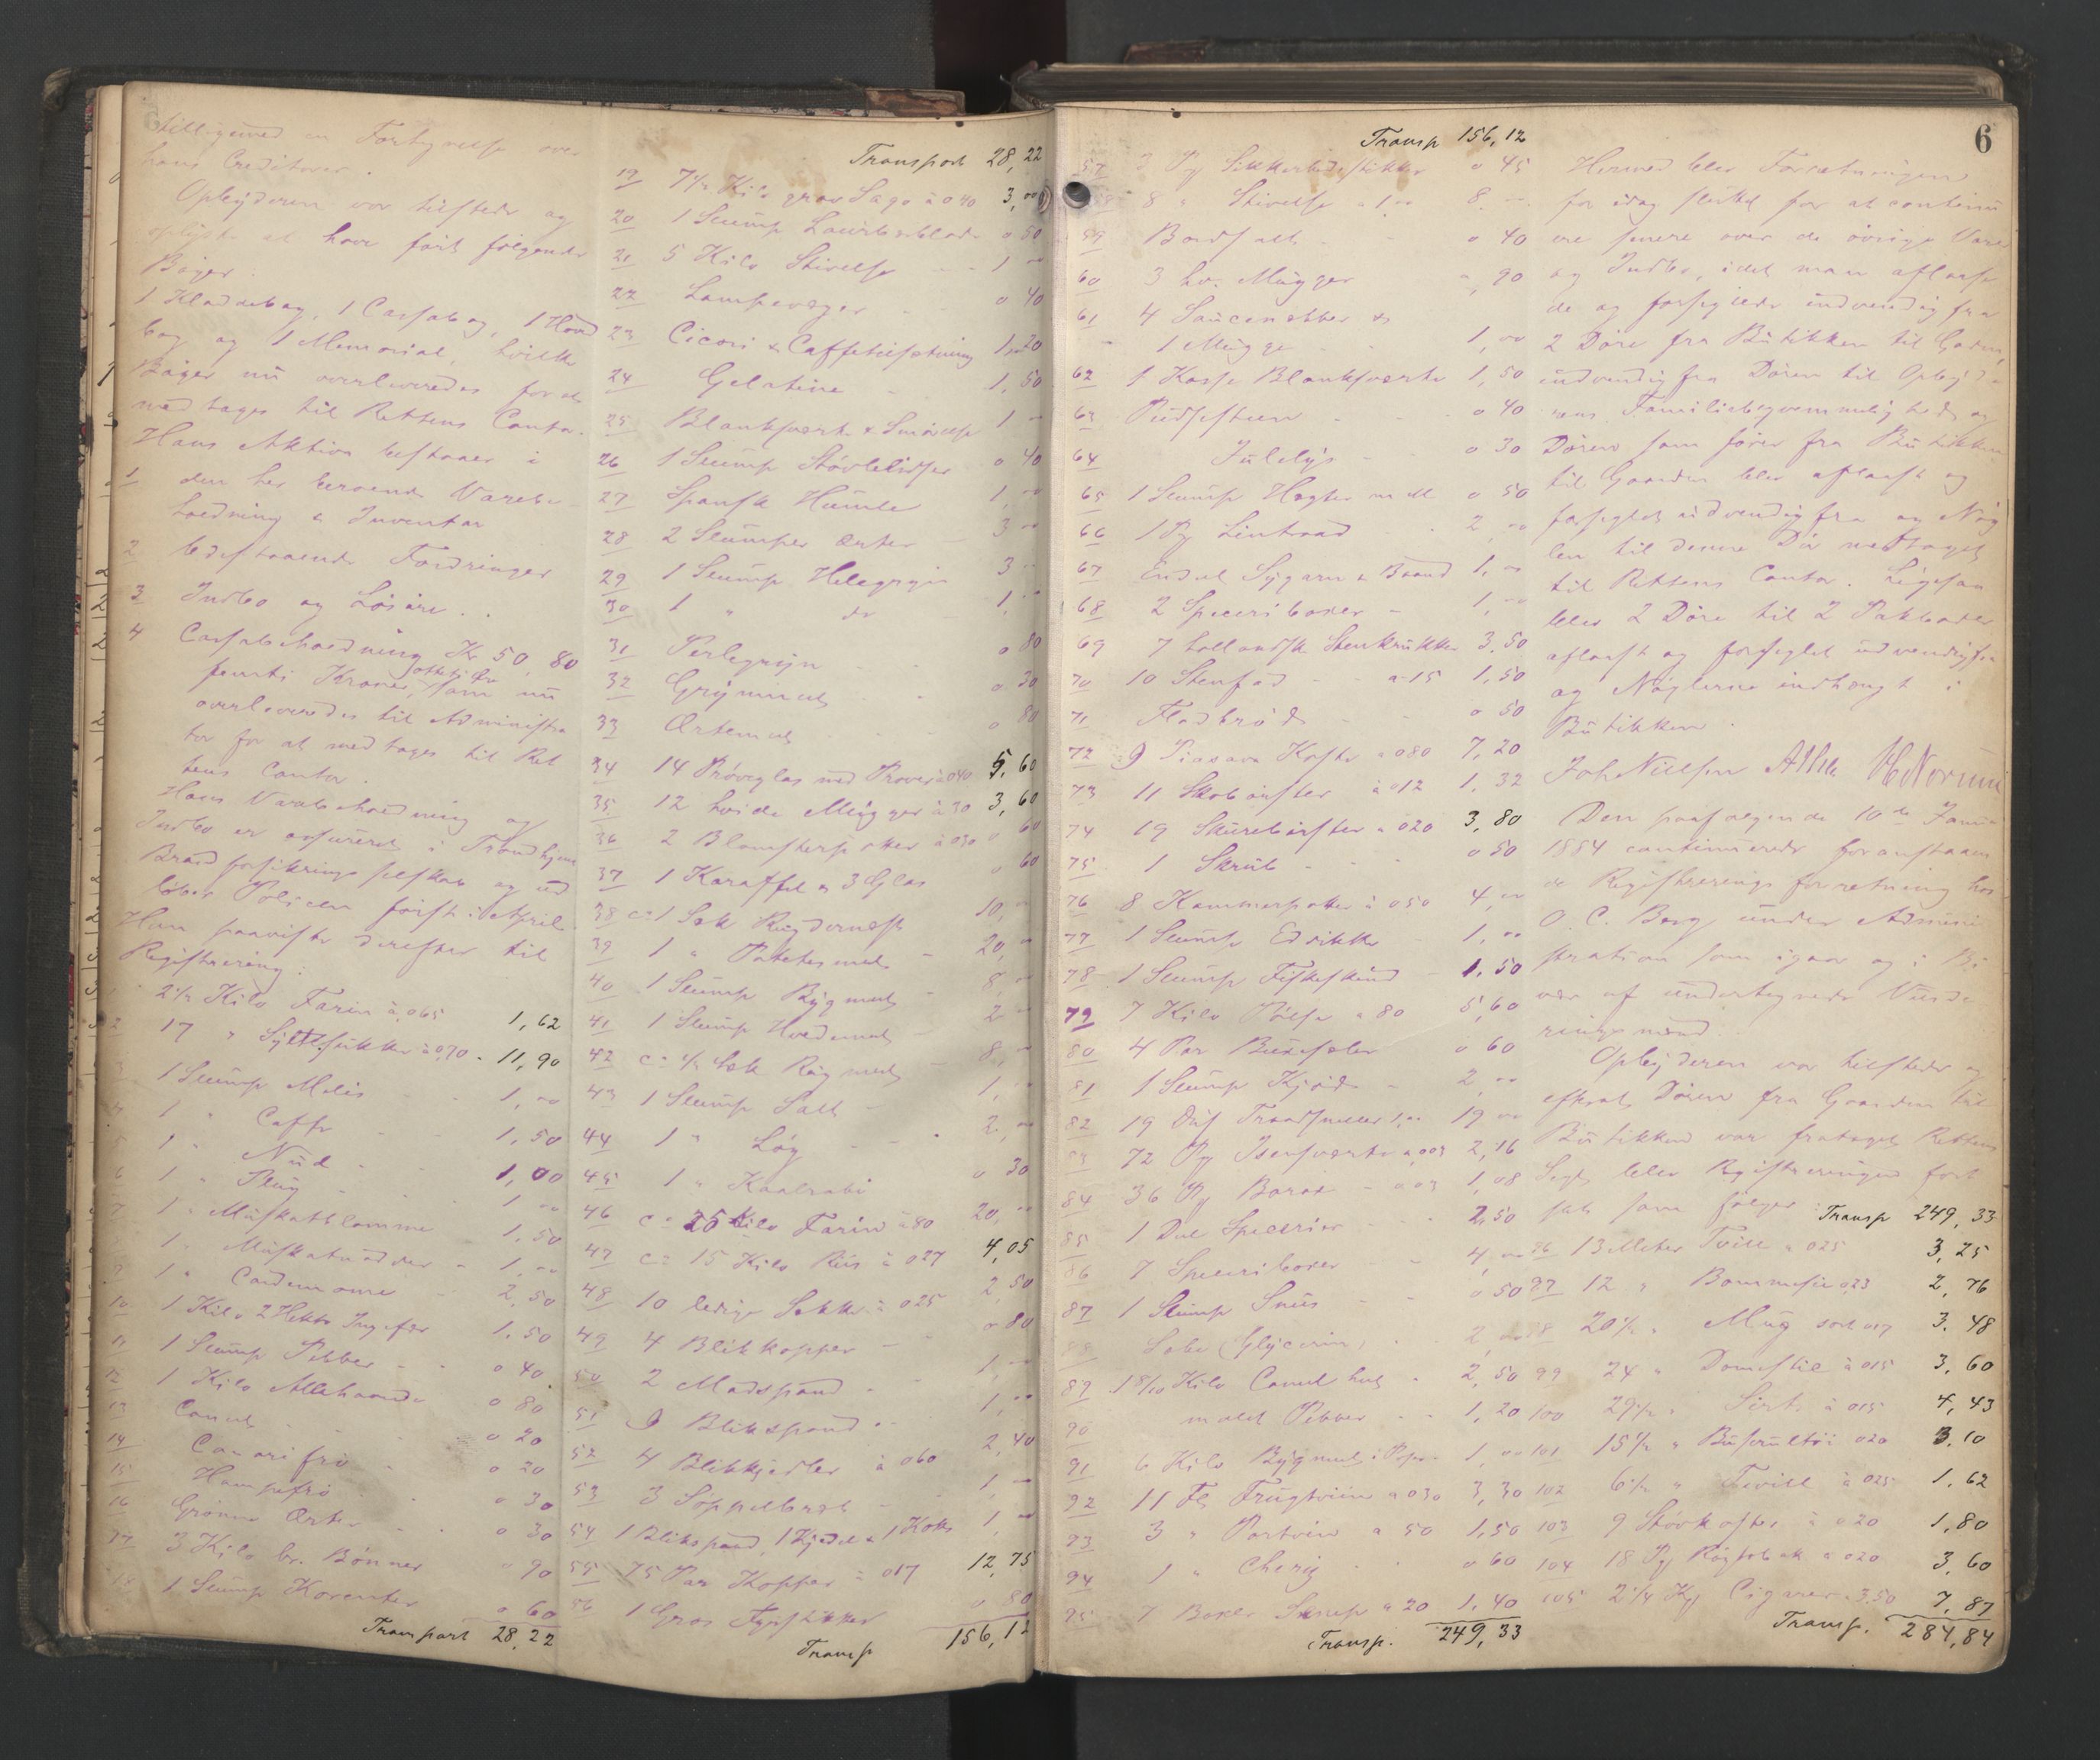 tilligemed en Fortegnelse over
hans Creditorer.
Opbyderen var tilstede og
oplyste at have fört fölgende
Böger:
1 Kladdebog, 1 Cassabog, 1 Hoved
bog og 1 Memorial, hvilke
Böger nu overleveredes for at
medtages til Rettens Contor.
Hans Aktiva bestaaer i
1 den her beroende Varebe-
holdning & Inventar
2 Udestaaende Fordringer
3 Indbo og Lösöre.
4 Cassabeholdning Kr 50,80
femti Kroner, otteti öre som nu
overleveredes til Administra
tor for at medtages til Ret
tens Contor.
Hans Varebeholdning og
Indbo er assureret i Trondhjems
Brandforsikringsselskab og ud
löber Policen först i April.
Han paaviste derefter til
Registrering:
1 2 1/2 Kilo Farin à 065 1,62
2 17 " Syltesukker à 0,70 11,90
3 1 Slump Melis 1,00
4 1 " Caffe 1,50
5 1 " Nud 1,00
6 1 " Plug 1 00
7 1 " Muskatblomme 1,50
8 1 " Muskatnödder 1,00
9 1 " Cardemome 2,50
10 1 Kilo 2 Hekto Ingefær 1,50
11 1 Slump Pebber 0 40
12 1 Kilo Allehaande 0 80
13 Canel 0 20
14 Canarifrö 0 20
15 Hampefrö 0 30
16 Grönne Erter 0 30
17 3 Kilo br. Bönner 0 90
18 1 Slump Korenter 0 60
Transport 28,22
Transport 28,22
19 7 1/2 Kilo grov Sago à 0 40 3,00
20 1 Slump Laurbærblade 0 50
21 5 Kilo Stivelse 1 00
22 Lampevæger 0 40
23 Cicori & Caffetilsetning 1,20
24 Gelatine 1,50
25 Blanksværte & Smörelse 1 00
26 1 Slump Stövlelidser 0 40
27 Spansk Humle 1,00
28 2 Slumper Erter 3 00
29 1 Slump Helegryn 3 00
30 1 " do 1,00
31 Perlegryn 0 80
32 Grynmel 0 30
33 Ertemel 0 80
34 14 Pröveglas med Pröver à 0 40 5,60
35 12 hvide Mugger à 30 3,60
36 2 Blomsterpotter à 030 0 60
37 1 Karaffel & 3 Glas 0 60
38 ca 1 Sæk Rug 10,00
39 1 " Potetesmel 20,00
40 1 Slump Bygmel 8,00
41 1 Slump Hvedemel 2 00
42 ca 1/2 Sæk Rugmel 8,00
43 1 Slump Salt 1,00
44 1 " Lög 2,00
45 1 " Kaalrabi 0 30
46 ca 25 Kilo Farin à 80 20,00
47 ca 15 Kilo Ris à 027 4,05
48 10 ledige Sekke à 025 2,50
49 4 Blikkopper 0 80
50 2 Madspand 1,00
51 Blikspand 1,00
52 4 Blikkjedler à 060 2,40
53 3 Söppelbret 1,00
54 1 Blikspand, 1 Kjedel & 1 Kop 1,00
55 75 Par Kopper à 017 12,75
56 1 Gros Fyrstikker 0 80
Transp 156,12
Transp 156,12
57 3 Pg Sikkerhedsstikker 0 45
58 8 " Stivelse à 1,00 8,00
59 Bordsalt 0 40
60 3 hv. Mugger 0,90
61 4 Saucenebber &
1 Mugge 1,00
62 1 Kasse Blanksværte 1,50
63 Pudsesten 0 40
64 Julelys 0 30
65 1 Slump Hegter 0 50
66 1 Pg Lintraad 2,00
67 Endel Sygarn & Baand 1,00
68 2 Specieriboxer 1,00
69 7 hollandske Stenkrukker 3,50
70 10 Stenfad à 15 1,50
71 Fladbröd 0 50
72 9 Piasava Koste à 080 7,20
73 11 Skobörster à 012 1,32
74 19 Skurebörster à 020 3,80
75 1 Skrub 0 50
76 8 Kammerpotter à 050 4,00
77 1 Slump Eddikke 1,00
78 1 Slump Fiskeskind 1,50
79 7 Kilo Pölse à 80 5,60
80 4 Par Buxeseler 0 60
81 1 Slump Kjöd 2,00
82 19 Dus Traadsneller 1,00 19 00
83 72 Pg Isensværte à 003 2,16
84 36 Pg Borax à 03 1,08
85 1 Del Specerier 2,50
86 7 Specieriboxer 4,00
87 1 Slump Snus 0 50
88 Sæbe (Glycerin) 2,00
89 1 8/10 Kilo Canel hel 2,50
90 malet Pebber 1,20
91 6 Kilo Bygmel i Poser 1,00
92 11 Fl Frugtviin à 030 3,30
93 3 " Portviin à 50 1,50
94 1 " Cherry 0 60
95 7 Boxer Sennep à 20 1,40
Transp. 249,33
6
Hermed blev Forretningen
for idag sluttet for at continu
ere senere over de övrige Varer
og Indbo, idet man aflaase
de og forseglede indvendig fra
2 Döre fra Butikken til Gaden,
indvendig fra Dören til Opbyde
rens Familiebeqvemmelighed og
Dören som förer fra Butikken
til Gaarden blev aflaast og
forseglet udvendig fra og Nög
len til denne Dör medtaget
til Rettens Contor. Ligesaa
blev 2 Döre til 2 Pakboder
aflaast og forseglet udvendig fra
og Nöglerne indhængt i
Butikken.
Joh Nielsen
Den paafölgende 10de Janua
1884 continuerede foranstaaen
de Registreringsforretning hos
O. C. Borg under Admini
stration som igaar og i Bi
vær af undertegnede Vurde
ringsmænd.
Opbyderen var tilstede og
efterat Dören fra Gaarden til
Butikken var frataget Rettens
Segl, blev Registreringen fort
sat som fölger: Transp 249,33
96 13 Meter Tvill à 025 3,25
97 12 " Bommesie 023 2,76
98 20 1/2 " Mug sort 017 3.48
99 24 " Domestik à 015 3,60
100 29 1/2 " Sirts à 015 4,43
101 15 1/2 " Buserultöi 020 3,10
102 6 1/2 " Tvill à 025 1,62
103 9 Stövkoster à 020 1,80
104 18 Pg Rögtobak à 020 3,60
105 2 1/4 Kg Cigarer 3,50 7,87
Transp. 284,84